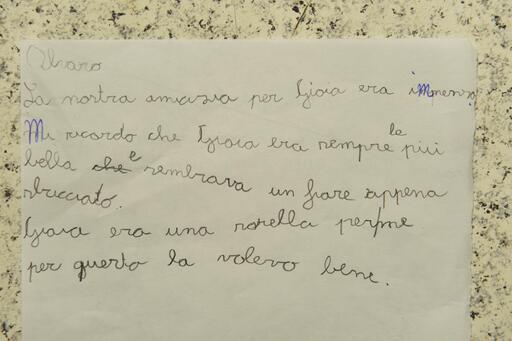 Alvaro
La nostra amicizia per Gioia era immensa
Mi ricordo che Gioia era sempre le più
bella che e sembrava un fiore appena
sbucciato.
Gioia era una sorella per me
per questo la volevo bene.